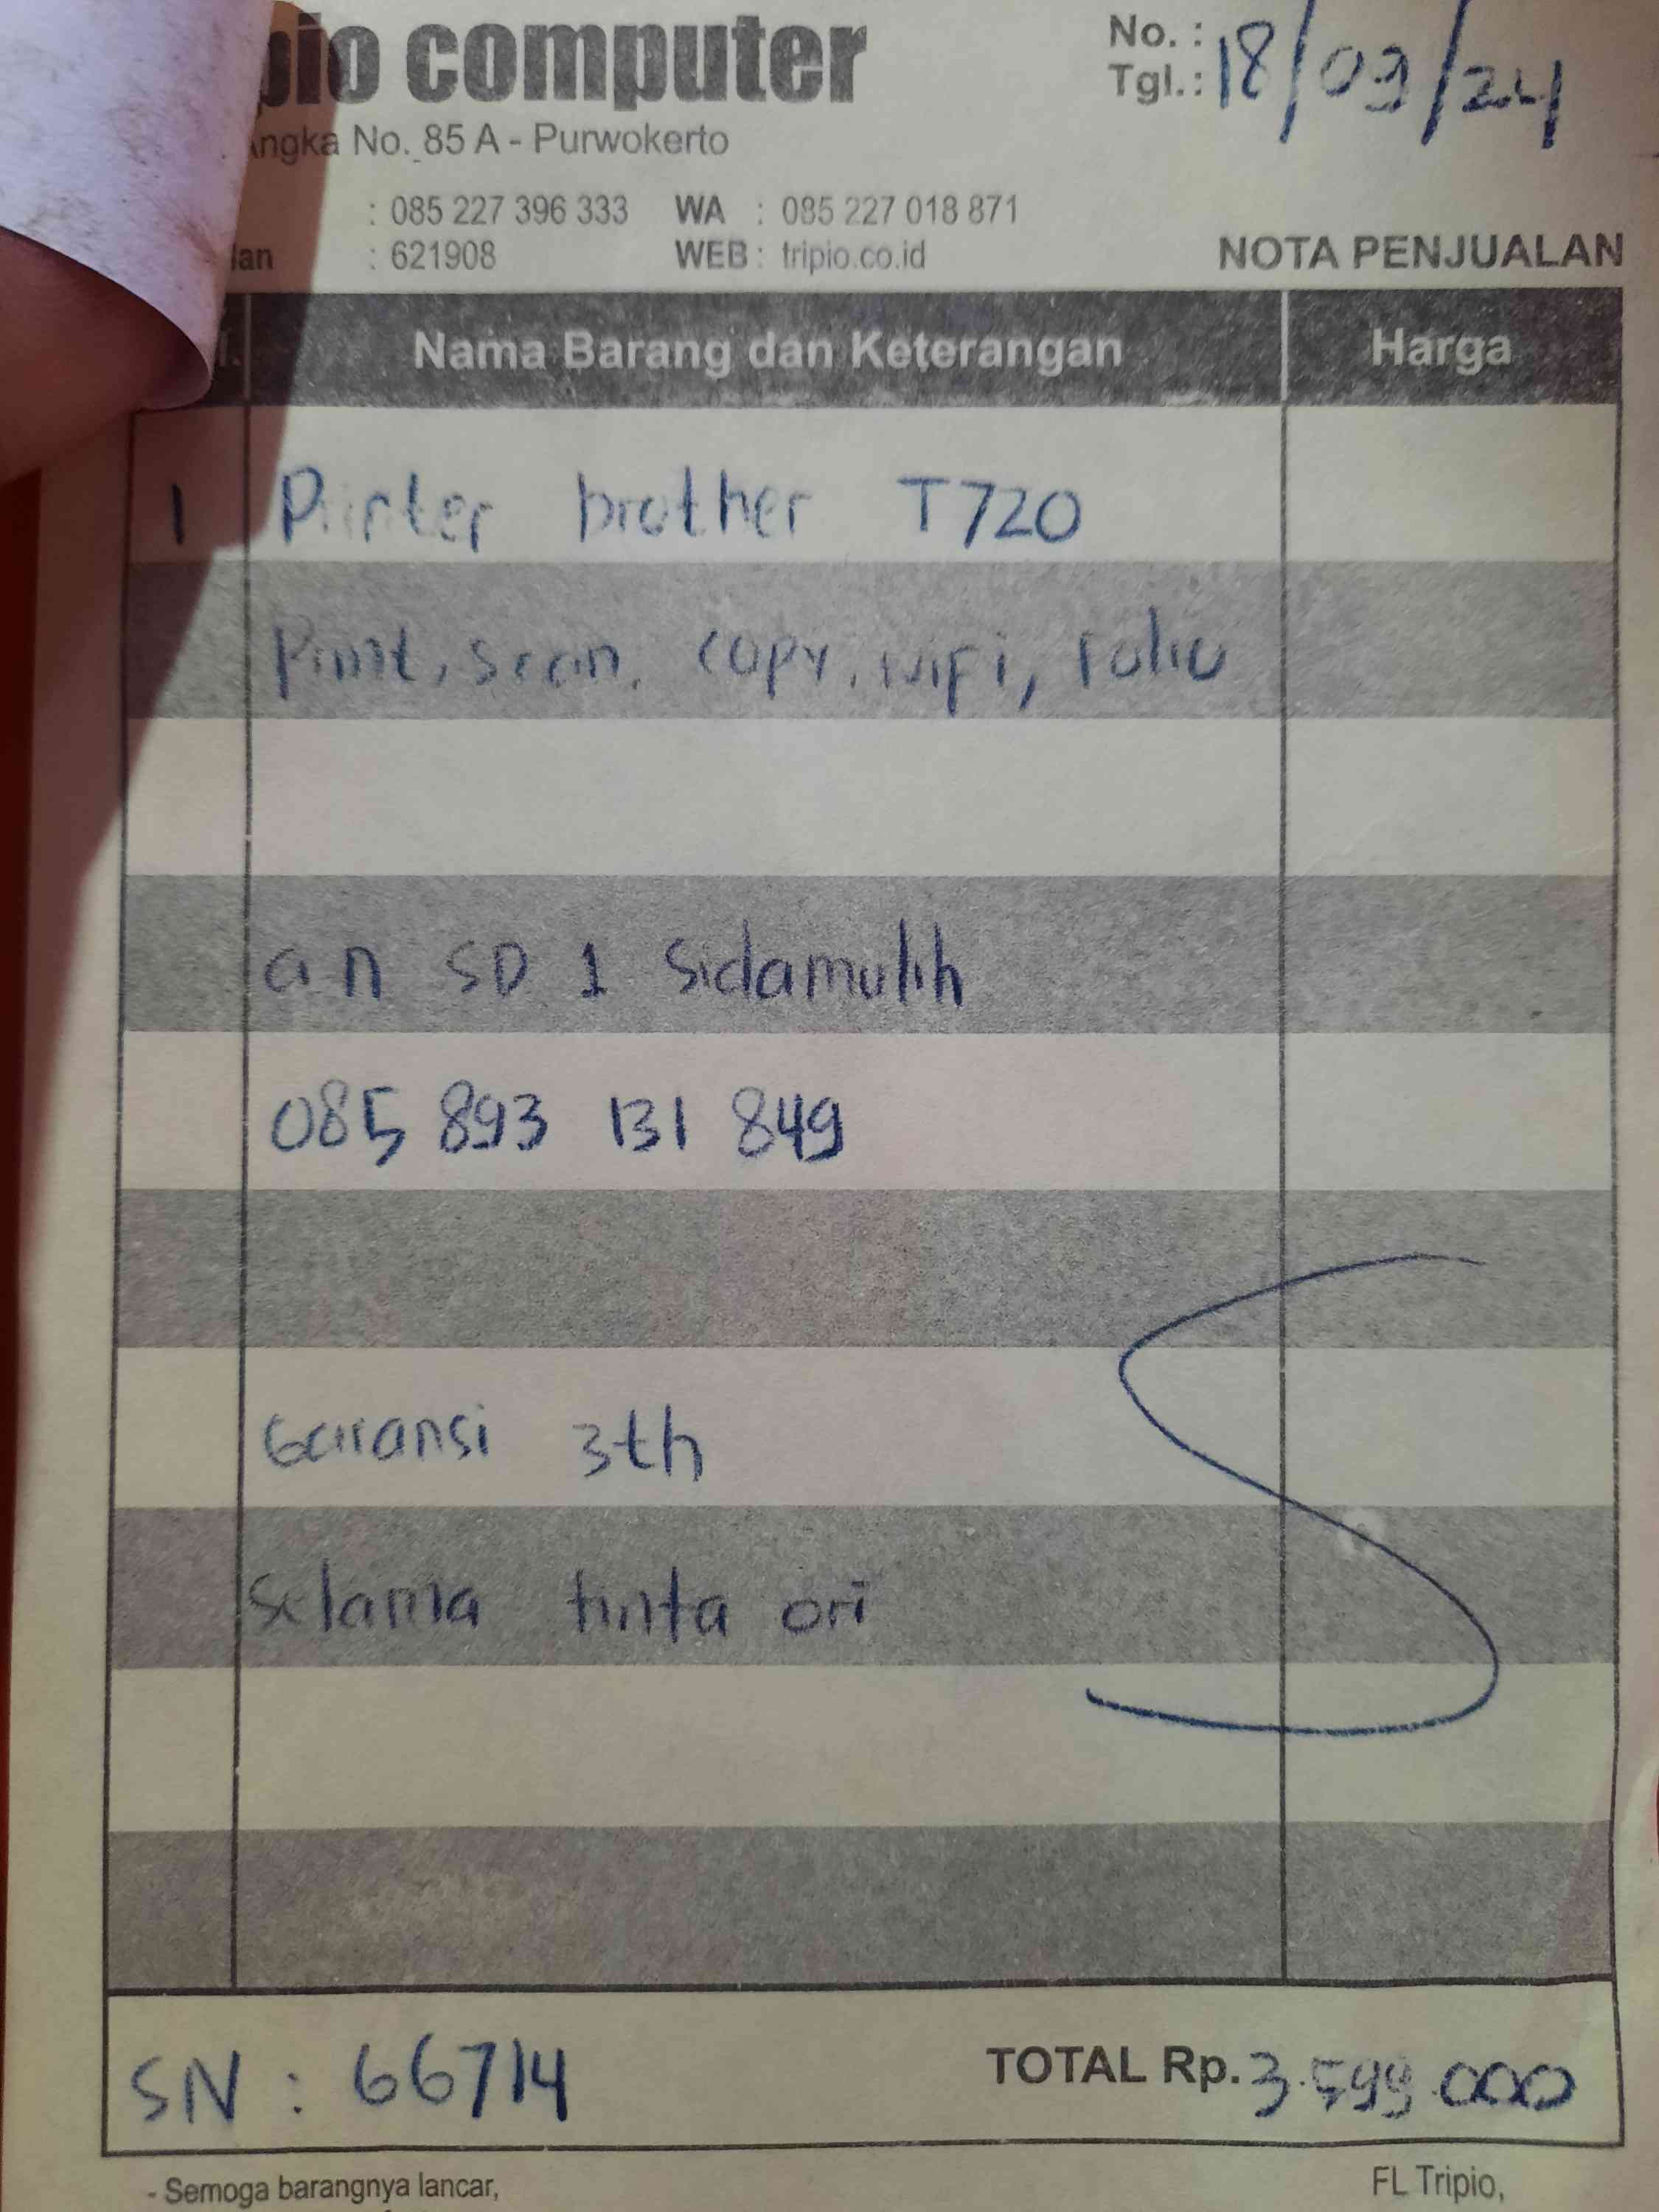 pio computer
No. :
Tgl. : 18/09/24
Angka No. 85 A - Purwokerto
: 085 227 396 333 WA : 085 227 018 871
lan : 621908 WEB : tripio.co.id
NOTA PENJUALAN
Nama Barang dan Keterangan Harga
1 Printer brother T720
Print, scan, copy, wifi, folio
an SD 1 Sidamulih
085 893 131 849
Garansi 3th
Selama tinta ori
SN : 66714 TOTAL Rp. 3.599.000
- Semoga barangnya lancar, FL Tripio,